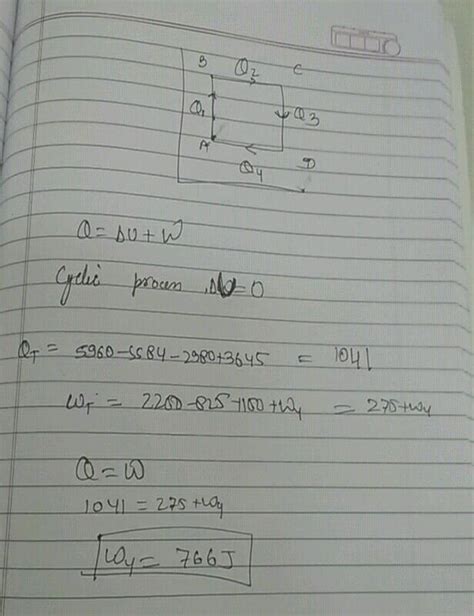 B Q2 C
Q1 Q3
A
Q4 D
Q = ΔU + W
Cyclic process ΔU = 0
QT = 5960 - 5584 - 2980 + 3645 = 1041
WT = 2200 - 825 - 1100 + W4 = 275 + W4
Q = W
1041 = 275 + W4
W4 = 766 J